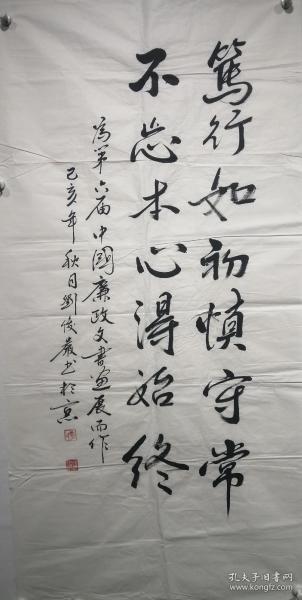 篤行如初慎守常
不忘本心得始終
為第六届中國廉政文書畫展而作
己亥年秋月劉俊嚴书於京
孔夫子旧书网
www.kongfz.com